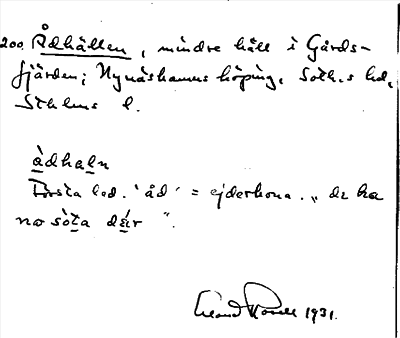 200. Ådhällen, mindre häll i Gårds-
fjärden; Nynäshamns köping, Soth.s hd,
Sthlms l.
àdhaln
Första led. 'åd' = ejderhona. „ de ha
no sòta déir ".
1931.